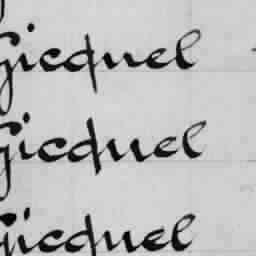 Gicquel
Gicquel
Gicquel